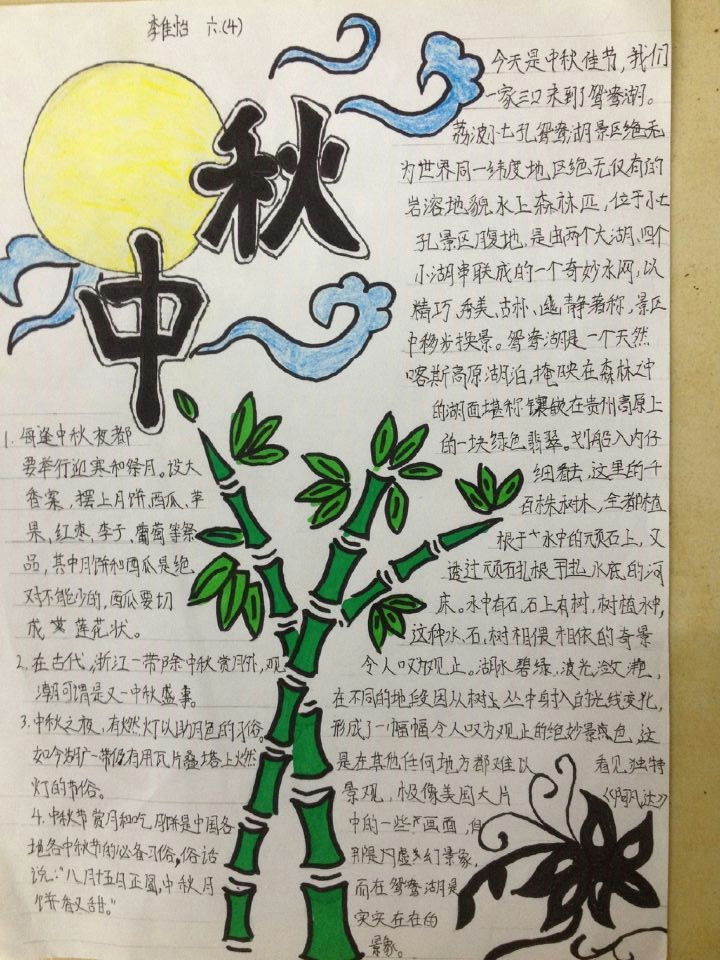 李佳怡 六.(4)
中秋
今天是中秋佳节,我们
一家三口来到了鸳鸯湖。
荔波小七孔鸳鸯湖景区绝无
为世界同一纬度地区绝无仅有的
岩溶地貌水上森林匹,位于小七
孔景区腹地,是由两个大湖、四个
小湖串联成的一个奇妙水网,以
精巧、秀美、古朴、幽静著称,景区
中移步换景。鸳鸯湖是一个天然
喀斯高原湖泊,掩映在森林之中
的湖面堪称镶嵌在贵州高原上
的一块绿色翡翠。划船入内仔
细看去,这里的千
百株树木,全都植
根于水中的顽石上,又
透过顽石扎根于水底的河
床。水中有石,石上有树,树植水中,
这种水、石、树相偎相依的奇景
令人叹为观止。湖水碧绿,波光潋滟,
在不同的地段因从树丛中射入的光线变化,
形成了一幅幅令人叹为观止的绝妙景色,这
是在其他任何地方都难以看见独特
景观,极像美国大片《阿凡达》
中的一些画面,但
那是内虚幻景象,
而在鸳鸯湖是
实实在在的
景象。
1. 每逢中秋夜都
要举行迎寒和祭月。设大
香案,摆上月饼、西瓜、苹
果、红枣、李子、葡萄等祭
品,其中月饼和西瓜是绝
对不能少的,西瓜要切
成莲花状。
2. 在古代,浙江一带除中秋赏月外,观
潮可谓是又一中秋盛事。
3. 中秋之夜,有燃灯以助月色的习俗。
如今湖广一带仍有用瓦片叠塔上燃
灯的节俗。
4. 中秋节赏月和吃月饼是中国各
地各中秋节的必备习俗,俗话
说:“八月十五月正圆,中秋月
饼香又甜。”